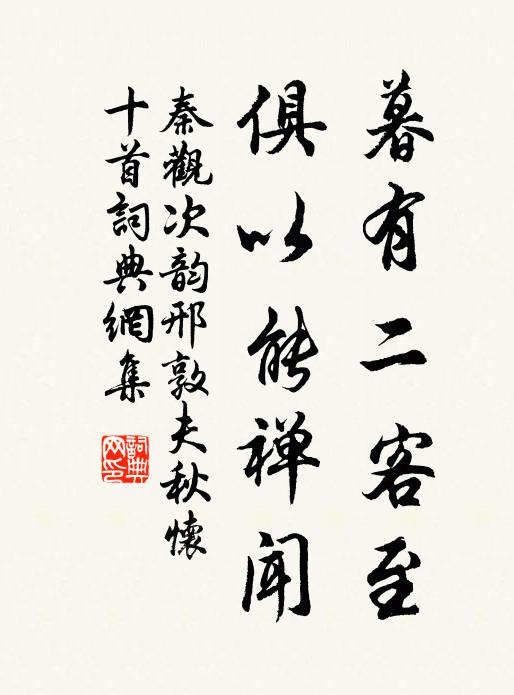 暮有二客至
俱以能禅聞
秦觀次韵邢敦夫秋懷
十首詞典網集
詞典
网印